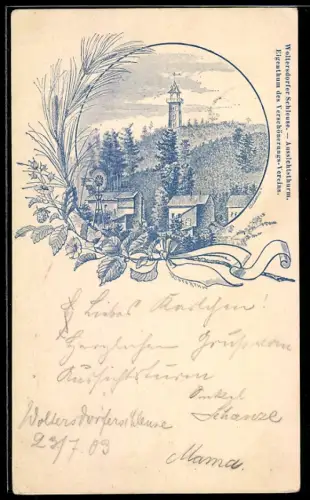 Woltersdorfer Schleuse. — Aussichtsthurm.
Eigenthum des Verschönerungs-Vereins.
Liebes Karlchen!
Herzlichen Gruß vom
Aussichtsturm
Onkel
Schanze
Woltersdorferschleuse
23/7 03
Mama.